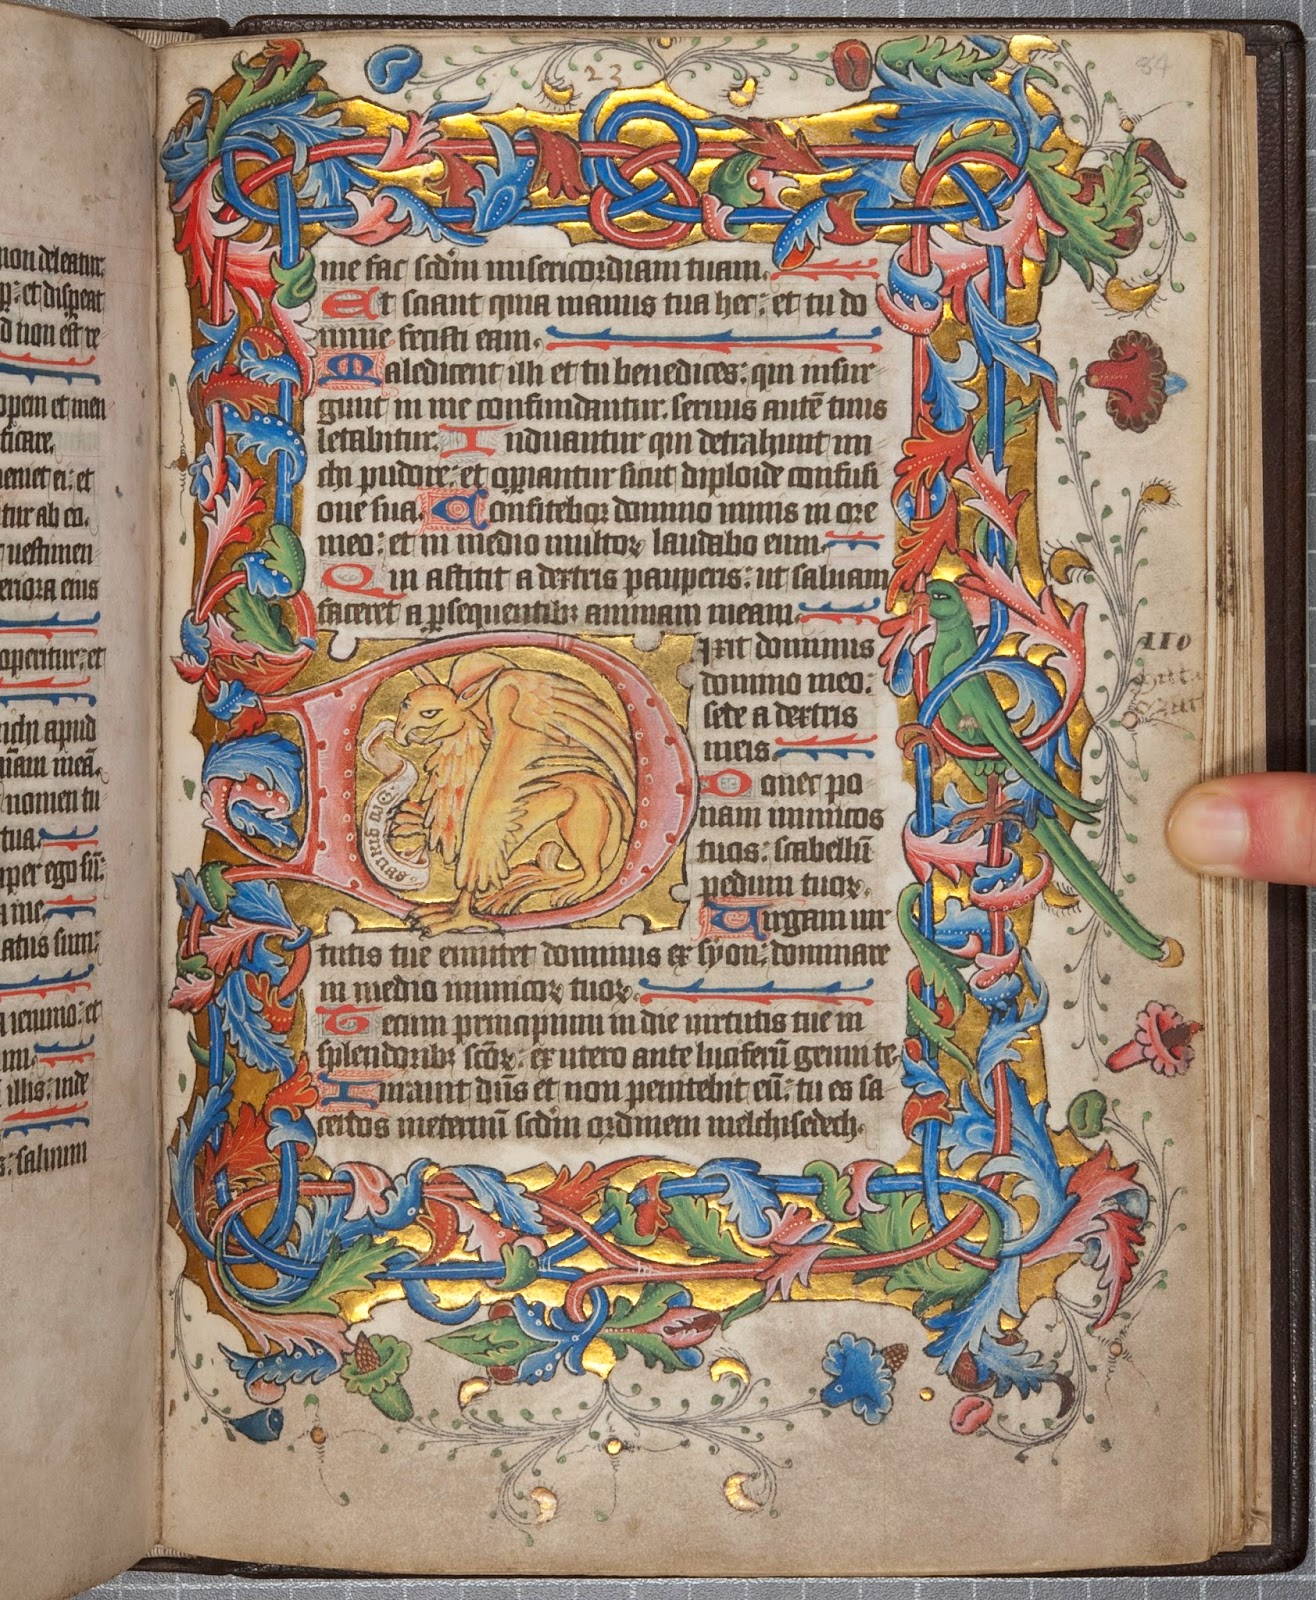 non deleatur.
et dispeat
d non est re
opem et men
ficare.
eniet ei: et
tur ab eo.
uestimen
eriora eius
aperitur: et
michi apud
nomen tu
tua.
a me.
atus sum:
ieiunio: et
illis: inde
saluum
23
84
me fac scdm misericordiam tuam.
Et sciant quia manus tua hec: et tu do
mine fecisti eam.
Maledicent illi et tu benedices: qui insur
gunt in me confundantur. seruus autē tuus
letabitur. Induantur qui detrahunt mi
chi pudore: et opiantur sicut diploide confusi
one sua. Confitebor domino nimis in ore
meo: et in medio multoꝝ laudabo eum.
Qui astitit a dextris pauperis: ut saluam
faceret a psequentibꝫ animam meam.
Dixit dominus
domino meo:
sede a dextris
meis.
Donec po
nam inimicos
tuos: scabellū
pedum tuoꝝ.
Uirgam uir
tutis tue emittet dominus ex syon: dominare
in medio inimicoꝝ tuoꝝ.
Tecum principium in die uirtutis tue in
splendoribꝫ scōꝝ: ex utero ante luciferū genui te
Iurauit dūs et non penitebit eū: tu es sa
cerdos ineternū scdm ordinem melchisedech.
110